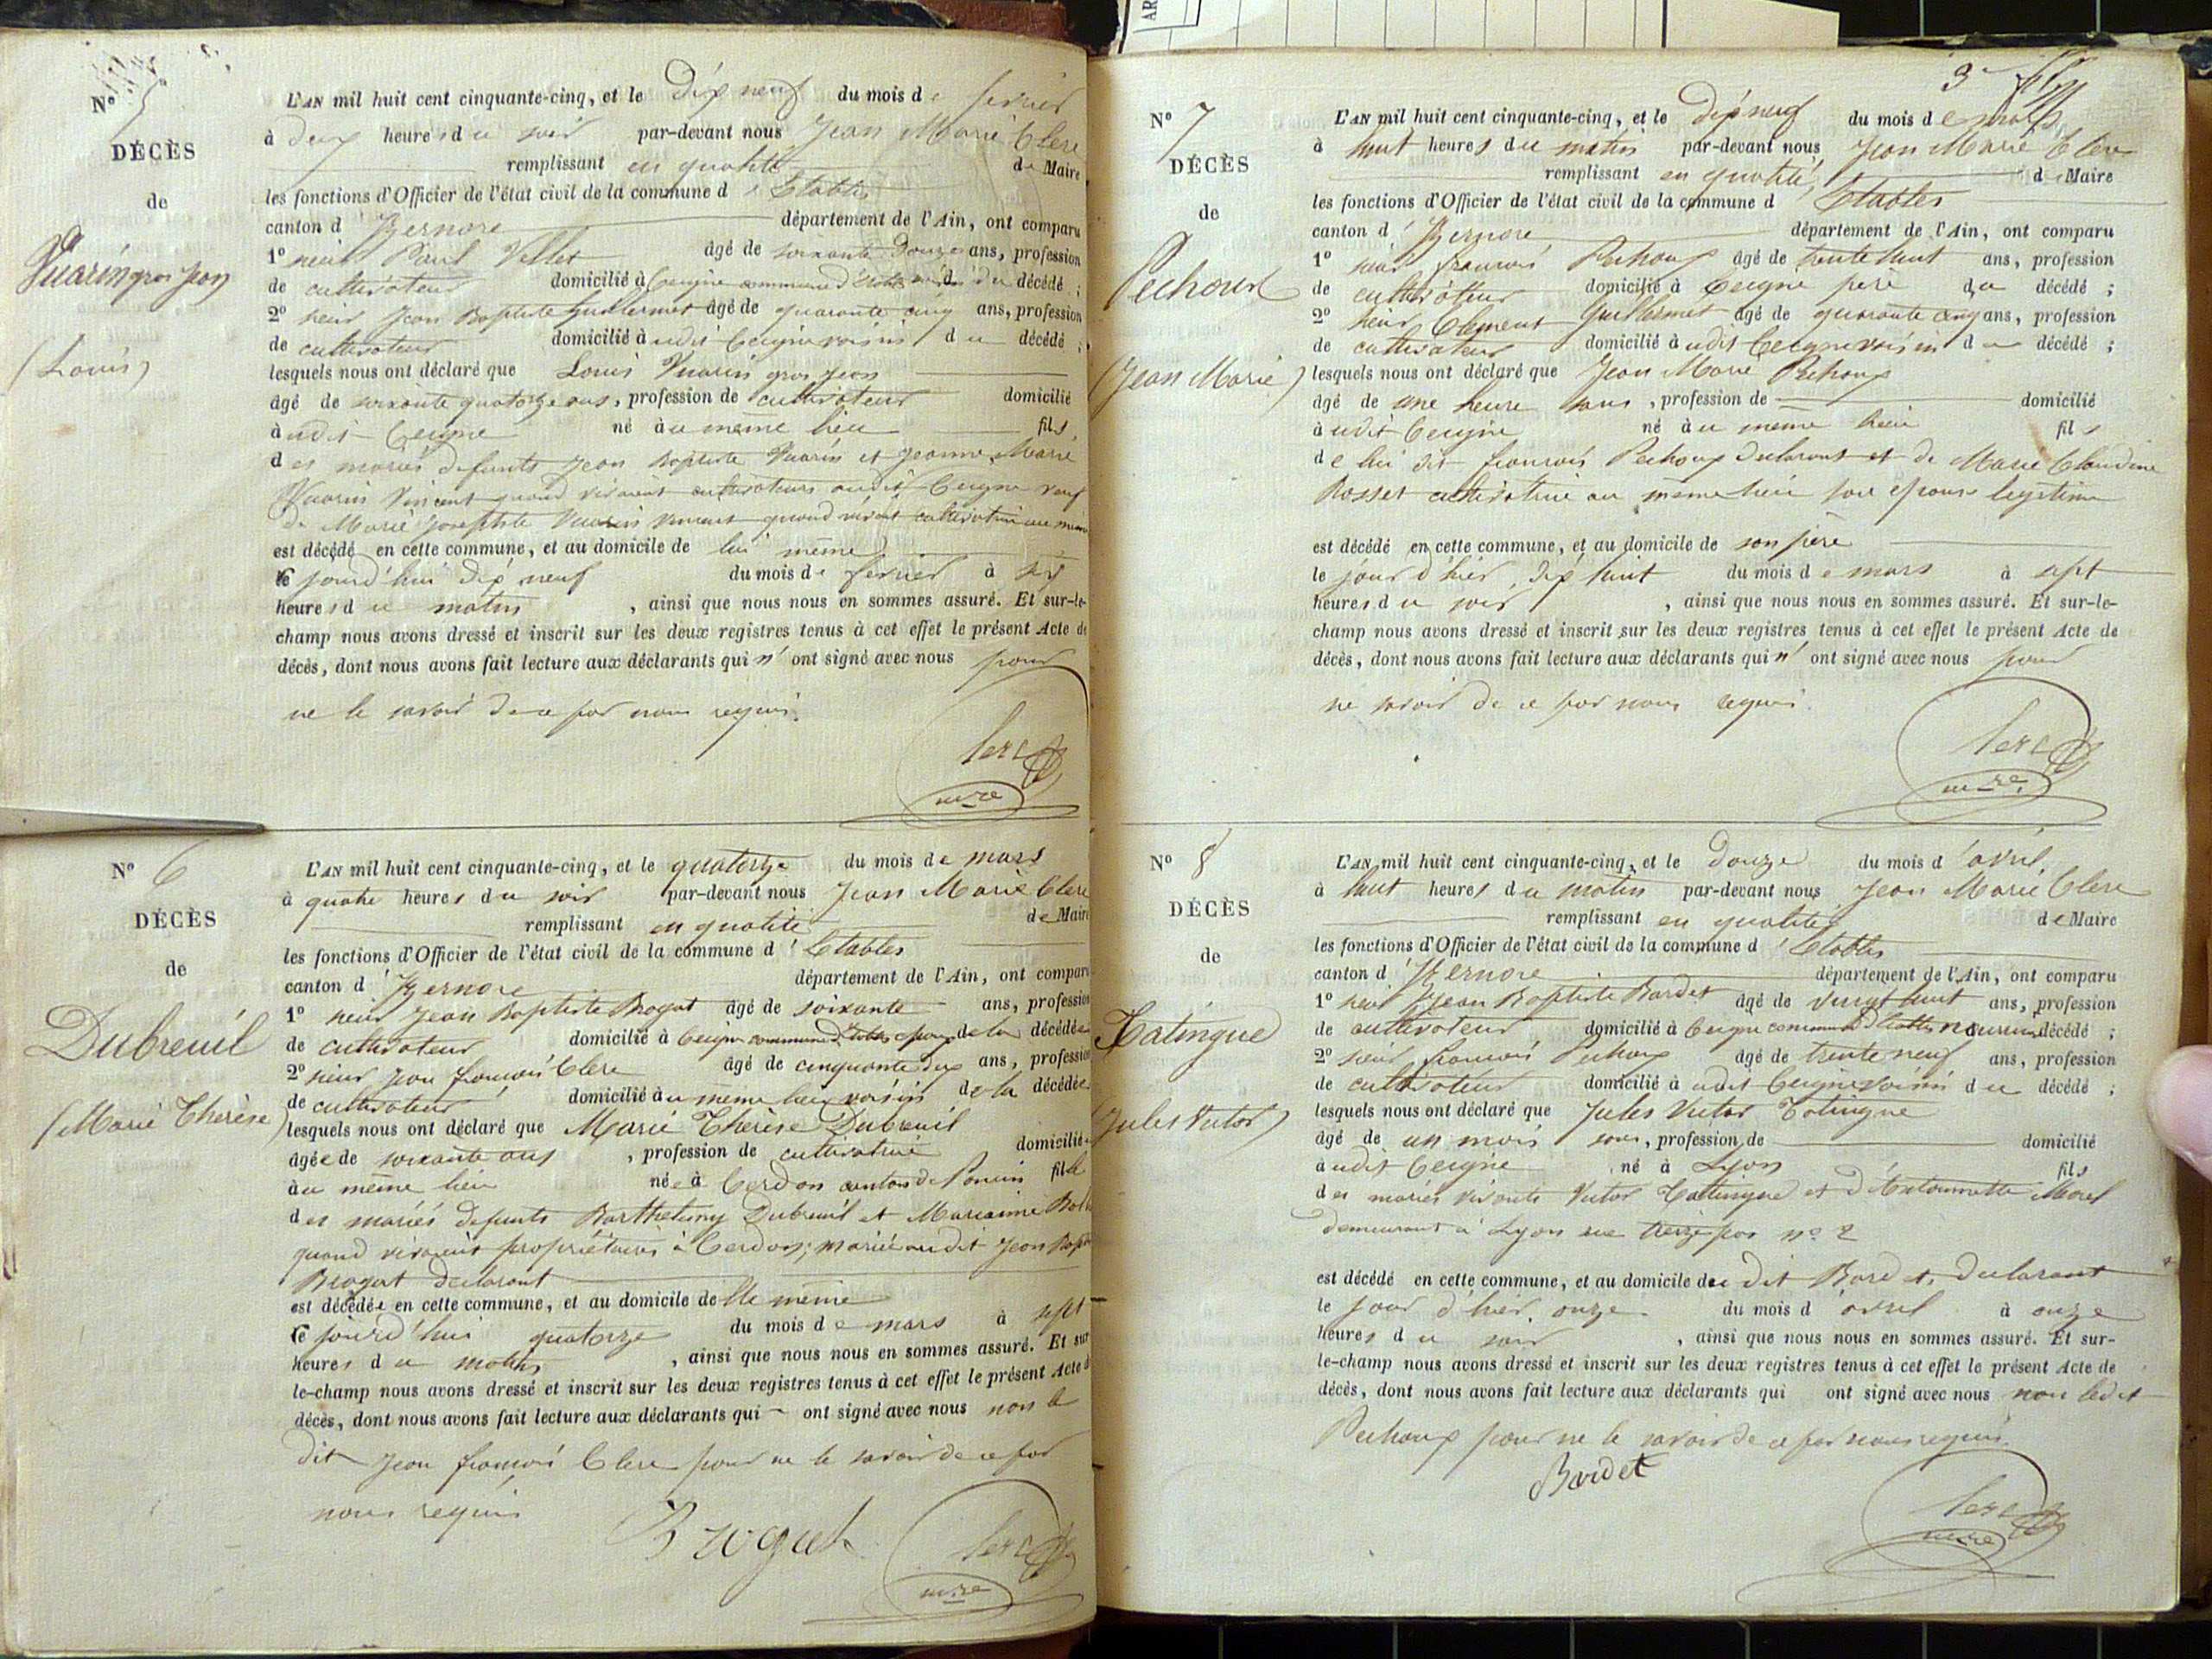 N° 5
DÉCÈS
de
Vuarin gros jean
(Louis)
L'AN mil huit cent cinquante-cinq, et le dix neuf du mois de fevrier
à deux heures du soir par-devant nous Jean Marie Clerc
remplissant en qualité de Maire
les fonctions d'Officier de l'état civil de la commune d'Etables
canton d'Izernore département de l'Ain, ont comparu
1° sieur Paul Vellet âgé de soixante douze ans, profession
de cultivateur domicilié à Ceigne commune d' voisin du décédé ;
2° sieur Jean Baptiste Guillermet âgé de quarante cinq ans, profession
de cultivateur domicilié audit Ceigne voisin du décédé ;
lesquels nous ont déclaré que Louis Vuarin gros jean
âgé de soixante quatorze ans, profession de cultivateur domicilié
audit Ceigne né au même lieu fils
des mariés defunts Jean Baptiste Vuarin et Jeanne Marie
Vuarin Vincent quand vivaient cultivateurs audit Ceigne veuf
de Marie Josephte Vuarin Vincent quand vivait cultivatrice au même
est décédé en cette commune, et au domicile de lui même
ce jourd'hui dix neuf du mois de fevrier à six
heures du matin, ainsi que nous nous en sommes assuré. Et sur-le-
champ nous avons dressé et inscrit sur les deux registres tenus à cet effet le présent Acte de
décès, dont nous avons fait lecture aux déclarants qui n'ont signé avec nous pour
ne le savoir de ce par nous requis.
Clerc
mre
N° 6
DÉCÈS
de
Dubreuil
(Marie Therèse)
L'AN mil huit cent cinquante-cinq, et le quatorze du mois de mars
à quatre heures du soir par-devant nous Jean Marie Clerc
remplissant en qualité de Maire
les fonctions d'Officier de l'état civil de la commune d'Etables
canton d'Izernore département de l'Ain, ont comparu
1° sieur Jean Baptiste Brogat âgé de soixante ans, profession
de cultivateur domicilié à Ceigne commune d'Etables epoux de la décédée
2° sieur Jean françois Clerc âgé de cinquante dix ans, profession
de cultivateur domicilié au même lieu voisin de la décédée
lesquels nous ont déclaré que Marie Therèse Dubreuil
âgée de soixante ans, profession de cultivatrice domiciliée
au même lieu née à Cerdon canton de Poncin fille
des mariés defunts Barthelemy Dubreuil et Marianne
quand vivaient propriétaires à Cerdon; mariée audit Jean Baptiste
Brogat declarant
est décédée en cette commune, et au domicile de elle même
ce jourd'hui quatorze du mois de mars à sept
heures du matin, ainsi que nous nous en sommes assuré. Et sur
le-champ nous avons dressé et inscrit sur les deux registres tenus à cet effet le présent Acte d
décès, dont nous avons fait lecture aux déclarants qui ont signé avec nous non le
dit Jean françois Clerc pour ne le savoir de ce par
nous requis
Brogat
Clerc
mre
3e
N° 7
DÉCÈS
de
Pechoux
(Jean Marie)
L'AN mil huit cent cinquante-cinq, et le dix neuf du mois de mars
à huit heures du matin par-devant nous Jean Marie Clerc
remplissant en qualité de Maire
les fonctions d'Officier de l'état civil de la commune d'Etables
canton d'Izernore département de l'Ain, ont comparu
1° sieur françois Pechoux âgé de trente huit ans, profession
de cultivateur domicilié à Ceigne père du décédé ;
2° sieur Clement Guillermet âgé de quarante cinq ans, profession
de cultivateur domicilié audit Ceigne voisin du décédé ;
lesquels nous ont déclaré que Jean Marie Pechoux
âgé de une heure sans, profession de domicilié
audit Ceigne né au même lieu fils
de lui dit françois Pechoux declarant et de Marie Claudine
Rosset cultivatrice au même lieu son epouse legitime
est décédé en cette commune, et au domicile de son père
le jour d'hier, dix huit du mois de mars à sept
heures du soir, ainsi que nous nous en sommes assuré. Et sur-le-
champ nous avons dressé et inscrit sur les deux registres tenus à cet effet le présent Acte de
décès, dont nous avons fait lecture aux déclarants qui n'ont signé avec nous pour
ne savoir de ce par nous requis.
Clerc
mre
N° 8
DÉCÈS
de
Tatingue
(Jules Victor)
L'AN mil huit cent cinquante-cinq, et le douze du mois d'avril
à huit heures du matin par-devant nous Jean Marie Clerc
remplissant en qualité de Maire
les fonctions d'Officier de l'état civil de la commune d'Etables
canton d'Izernore département de l'Ain, ont comparu
1° sieur Jean Baptiste Bardet âgé de vingt huit ans, profession
de cultivateur domicilié à Ceigne commune d'Etables décédé ;
2° sieur françois Pechoux âgé de trente neuf ans, profession
de cultivateur domicilié audit Ceigne voisin du décédé ;
lesquels nous ont déclaré que Jules Victor Tatingue
âgé de un mois sans, profession de domicilié
audit Ceigne né à Lyon fils
des mariés vivants Victor Tattingue et d'Antoinette Morel
demeurant à Lyon rue treize pas n° 2
est décédé en cette commune, et au domicile du dit Bardet, declarant
le jour d'hier onze du mois d'avril à onze
heures du soir, ainsi que nous nous en sommes assuré. Et sur-
le-champ nous avons dressé et inscrit sur les deux registres tenus à cet effet le présent Acte de
décès, dont nous avons fait lecture aux déclarants qui ont signé avec nous non ledit
Pechoux pour ne le savoir de ce par nous requis.
Bardet
Clerc
mre